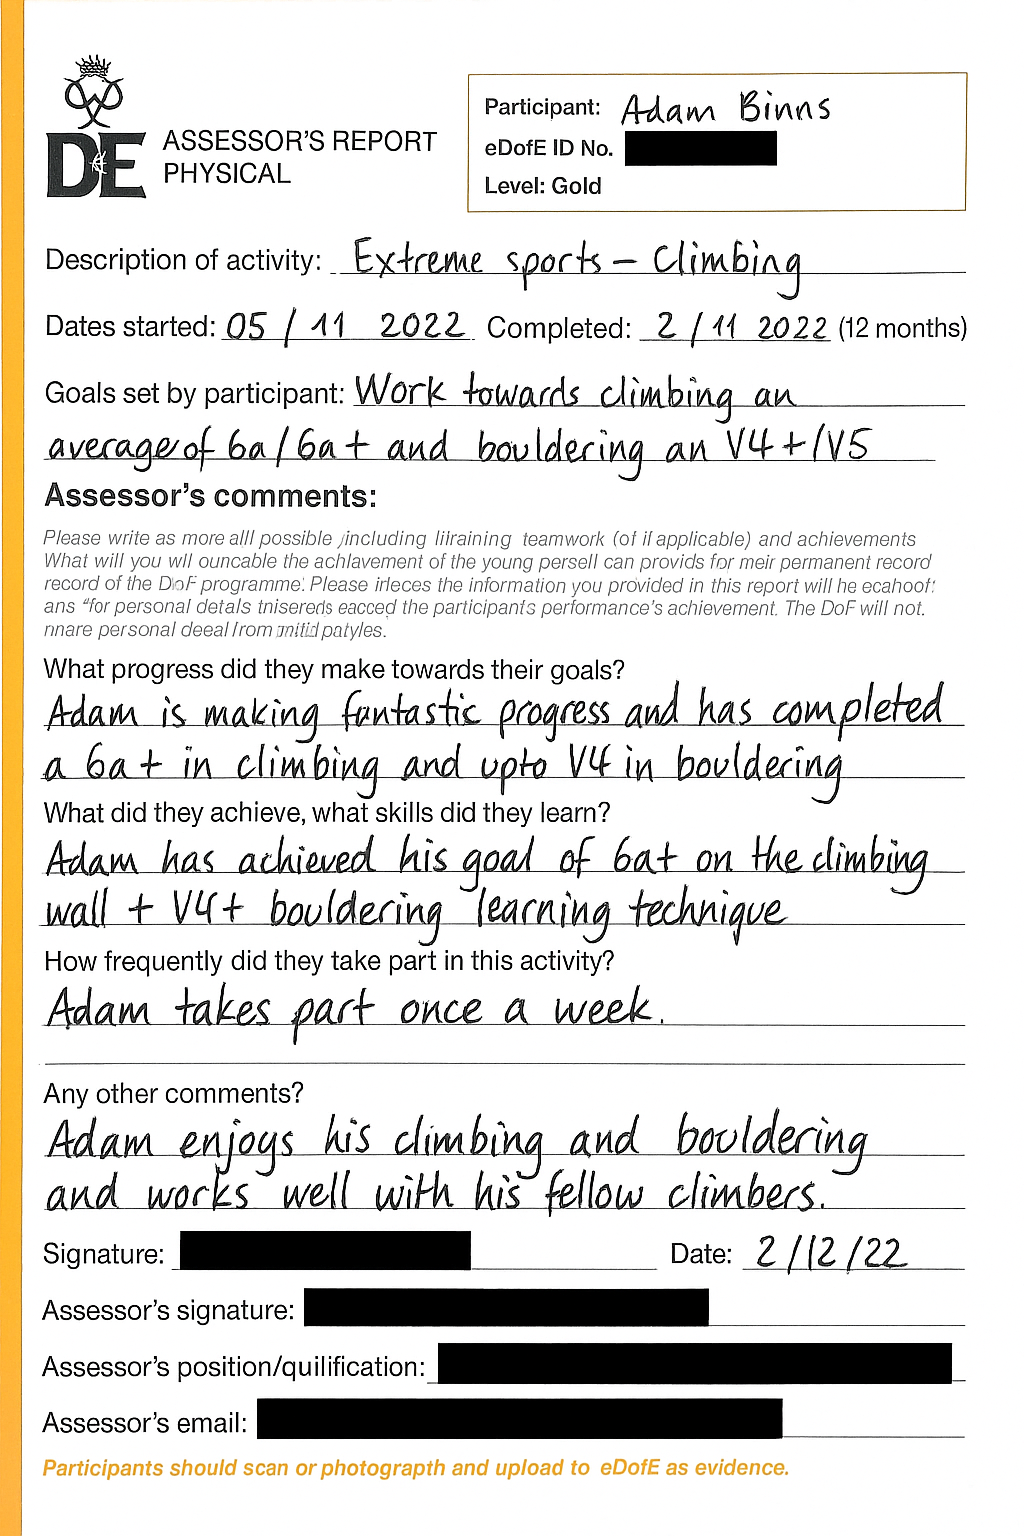 DE
ASSESSOR'S REPORT
PHYSICAL
Participant: Adam Binns
eDofE ID No.
Level: Gold
Description of activity: Extreme sports – Climbing
Dates started: 05 / 11 2022 Completed: 2 / 11 2022 (12 months)
Goals set by participant: Work towards climbing an
average of 6a / 6a+ and bouldering an V4+/V5
Assessor's comments:
Please write as more alll possible including lilraining teamwork (of if applicable) and achievements
What will you wll ouncable the achlavement of the young persell can provids for meir permanent record
record of the DoF programme. Please irleces the information you provided in this report will he ecahoof:
ans "for personal detals tnisereds eacced the participants performance's achievement. The DoF will not.
nnare personal deeal from patyles.
What progress did they make towards their goals?
Adam is making fantastic progress and has completed
a 6a+ in climbing and upto V4 in bouldering
What did they achieve, what skills did they learn?
Adam has achieved his goal of 6a+ on the climbing
wall + V4+ bouldering learning technique
How frequently did they take part in this activity?
Adam takes part once a week.
Any other comments?
Adam enjoys his climbing and bouldering
and works well with his fellow climbers.
Signature: Date: 2/12/22
Assessor's signature:
Assessor's position/quilification:
Assessor's email:
Participants should scan or photograpth and upload to eDofE as evidence.